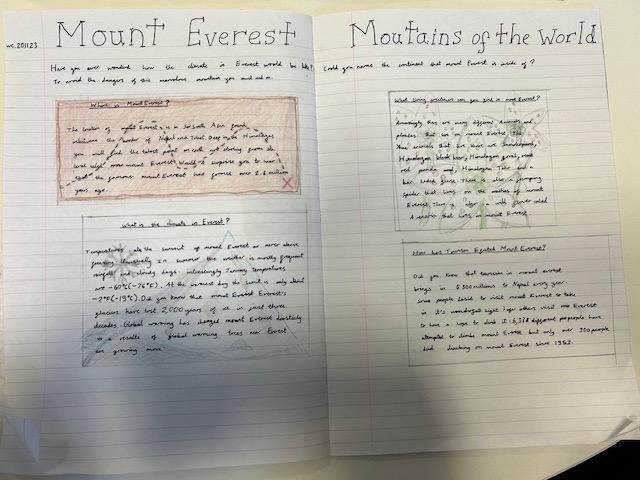 wc.201123
Mount Everest
Have you ever wonderd how the climate in Everest would be like?
To avoid the dangers of this marvelous mountain you must read on.
Where is Mount Everest?
The location of mount Everest is in South Asia found
inbetween the border of Nepal and Tibet. Deep in the Himalayas
you will find the tallest point on earth
level
that the famous mount Everest has formed over 2.6 million
years ago.
What is the climate in Everest?
Temperatures at the summit of mount Everest are never above
freezing. Usually In summer the weather is mostly frequent
rainfall and cloudy days. interestingly January temperatures
are -60°C(-76°F). At the warmest day the Summit is only about
-2°F(-19°C). Did you know that mount Everest's
glaciers have lost 2,000 years of ice in just three
decades. Global warming has changed mount Everest drasticly
as a results of global warming trees near Everest
are growing more.
Moutains of the World
Could you name the continent that mount Everest is inside of?
What living creatures can you find in mount Everest?
Amazingly there are many different Animals and
plants that live on mount Everest. The
animals that live there are Snowleopards,
Himalayan black bear, Himalayan goral, small
red panda, and, Himalayan Tahr and a
There is also a jumping
spider that lives on the of mount
Everest. There is also a wild flower called
Arenaria that lives on mount Everest.
How has Tourism Efected Mount Everest?
Did you know that tourism in mount everest
brings in $300 millions to Nepal every year.
Some people decide to visit mount Everest to take
in it's wonderfull sight. others visit mt Everest
to have a hope to climb it. 6,338 different people have
attempted to climb mount Everest but only over 300 people
died climbing on mount Everest since 1953.